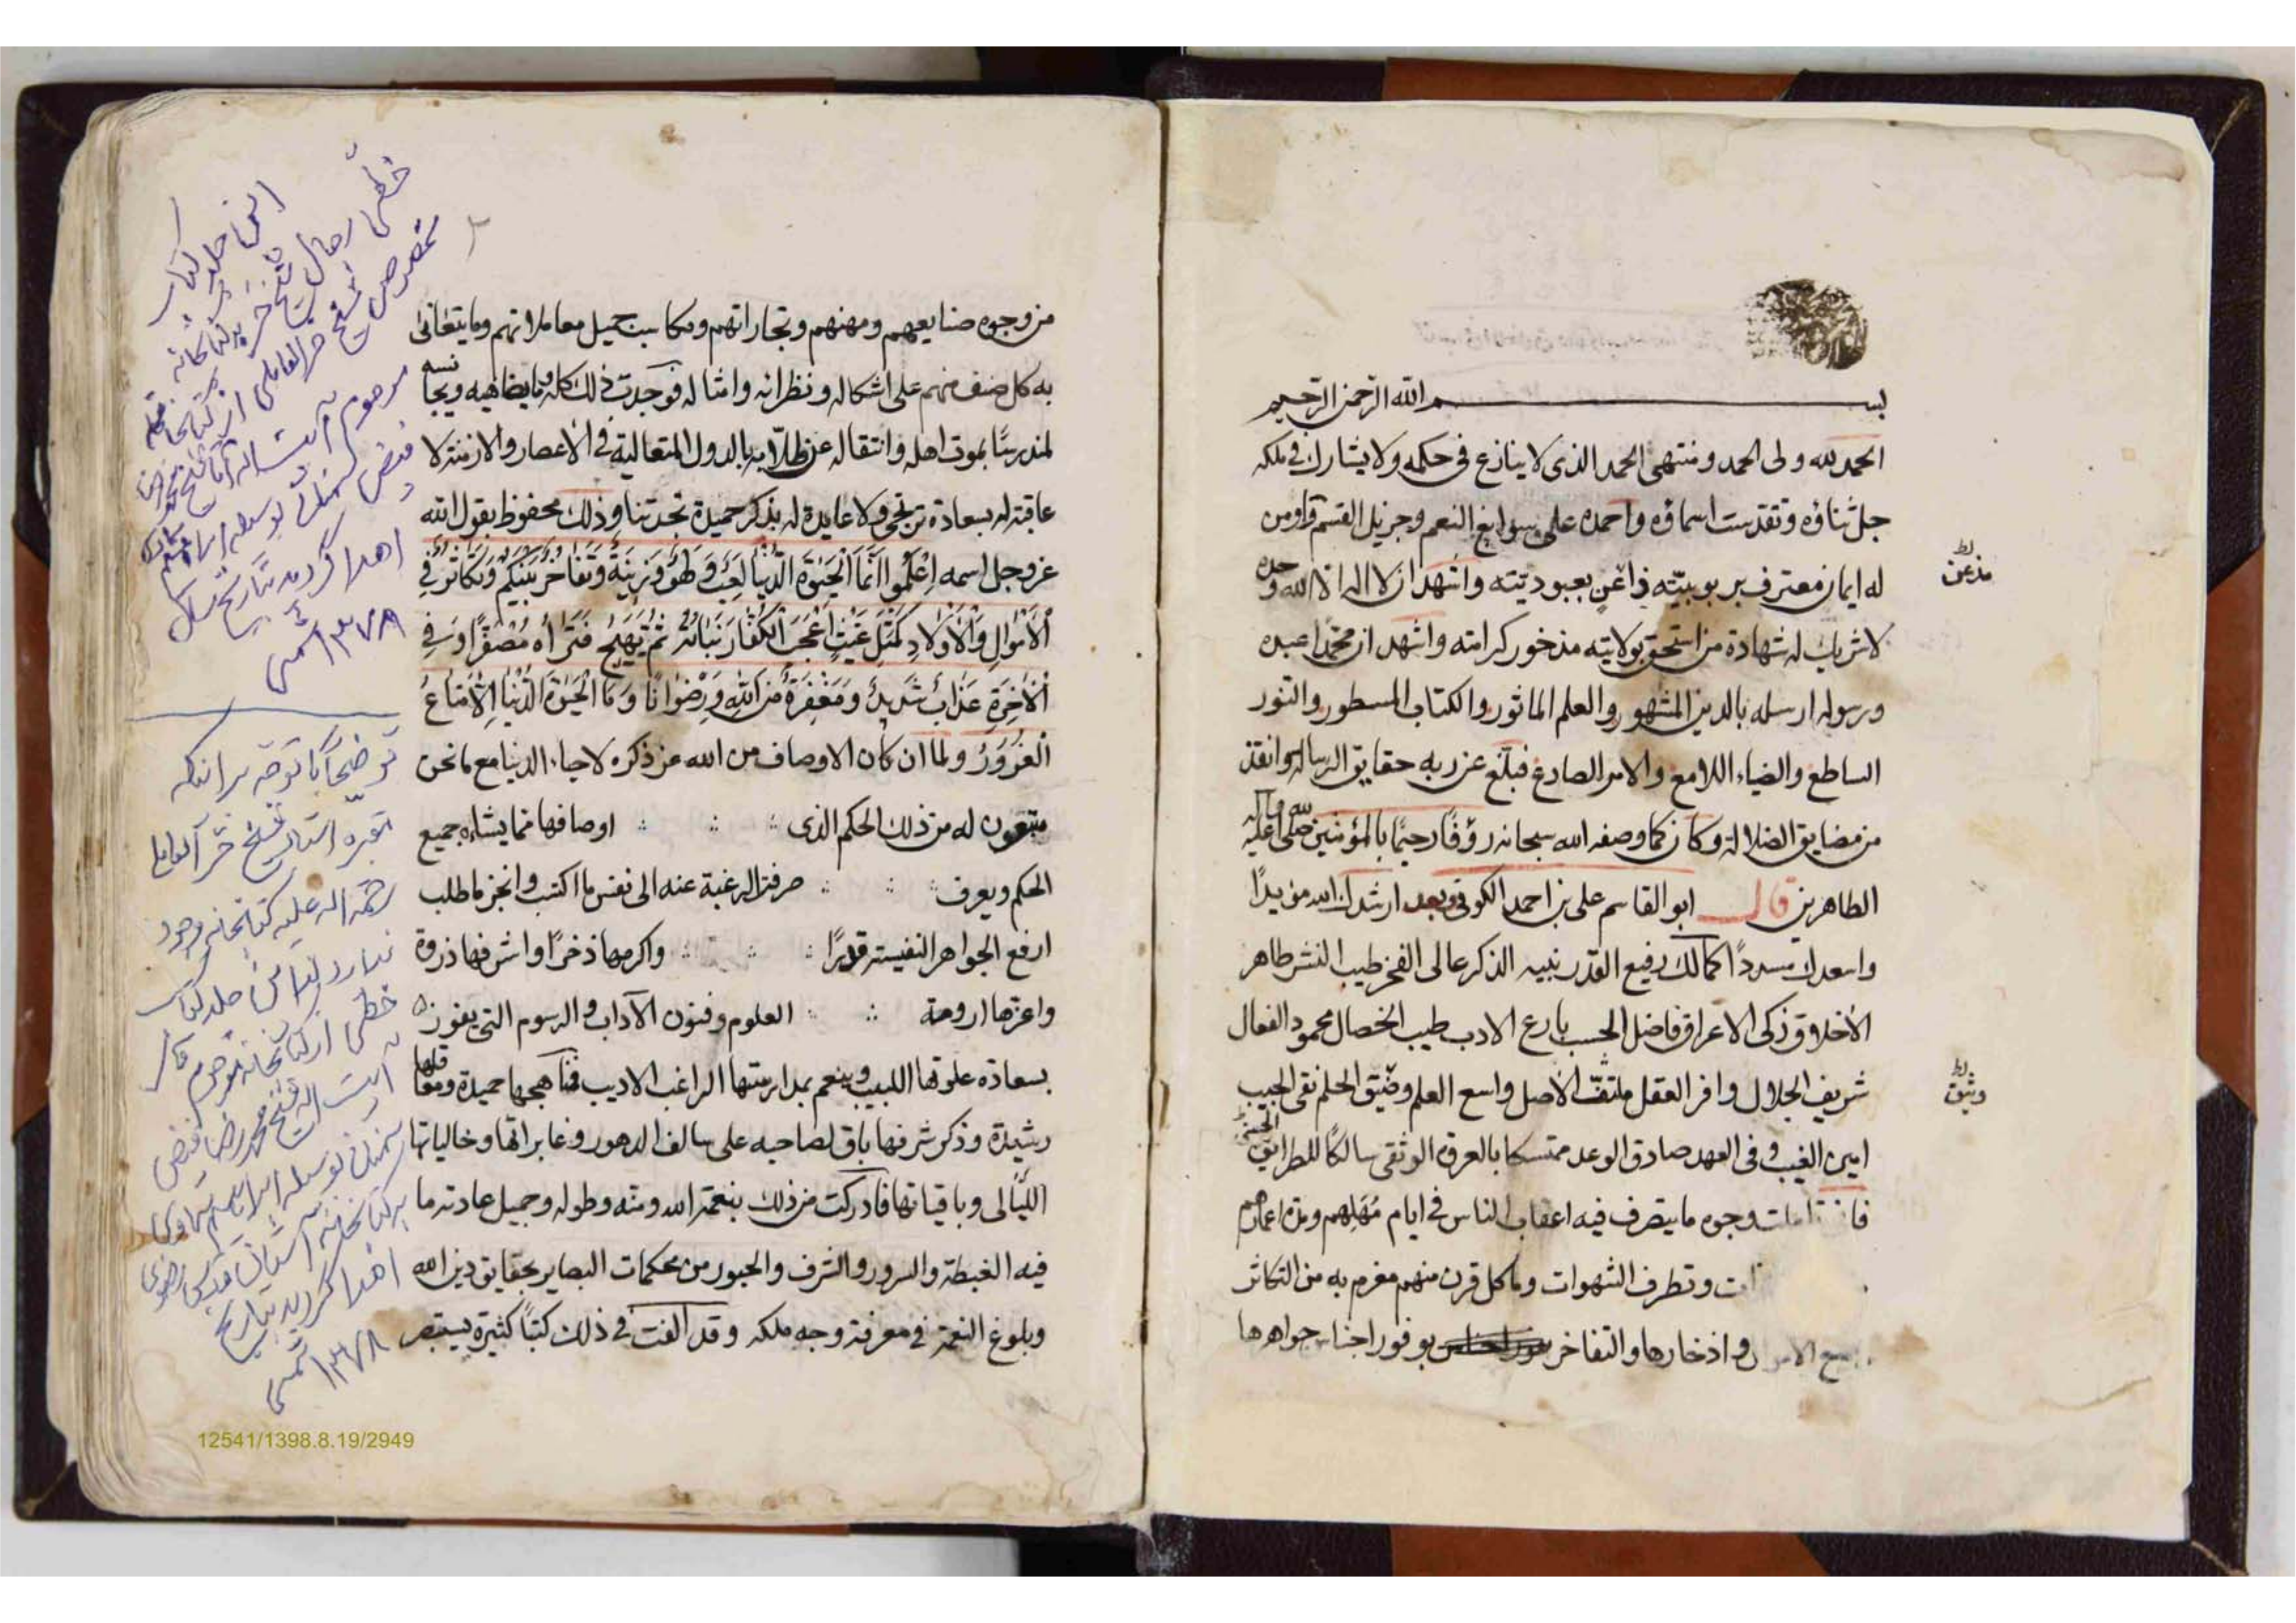 بسم الله الرحمن الرحيم
الحمد لله ولى الحمد ومنتهى الحمد الذى لا ينازع فى حكمه ولا يشارك فى ملكه
جل ثناؤه وتقدست اسماؤه واحمده على سوابغ النعم وجزيل القسم واومن
له ايمان معترف بربوبيته ذاعن بعبوديته واشهد ان لا اله الا الله وحده
مذعن
لا شريك له شهادة من استحق بولايته مذخور كرامته واشهد ان محمدا عبده
ورسوله ارسله بالدين المشهور والعلم الماثور والكتاب المسطور والنور
الساطع والضياء اللامع والامر الصادع فبلغ عن ربه حقايق الرسالة وانقذ
من مضايق الضلالة وكان كما وصفه الله سبحانه رؤفا رحيما بالمؤمنين صلى الله عليه وآله
الطاهرين قال ابو القاسم على بن احمد الكوفى وبعد ارشدك الله مؤيدا
واسعدك مسددا كمالك رفيع القدر نبيه الذكر عالى الفخر طيب النشر طاهر
الاخلاق زكى الاعراق فاضل الحسب بارع الادب طيب الخصال محمود الفعال
شريف الجلال وافر العقل ملتف الاصل واسع العلم وضيق الحلم نقى الجيب
وثيق
امين الغيب وفى العهد صادق الوعد متمسكا بالعروة الوثقى سالكا للطرايق الحسنى
تاملت وجوه ما يتصرف فيه اعقاب الناس فى ايام مهلهم ومدة اعمارهم
وتطرف الشهوات وما كل قرن منهم مغرم به من التكاثر
واذخارها والتفاخر بوفور اجناس جواهرها
من وجوه صنايعهم ومهنهم وتجاراتهم ومكاسب جميل معاملاتهم وما يتعانى
به كل صنف منهم على اشكاله ونظرانه وامثاله فوجدت ذلك كله وما يضاهيه ويجانسه
لمندرسا بموت اهله وانتقاله عن طلابه بالدول المتعالية فى الاعصار والازمنة لا
عاقبة له بسعادة ترتجى ولا عايدة له بذكر حميدة تجدتنا وذلك محفوظ بقول الله
عز وجل اسمه اِعْلَمُوا اَنَّمَا الْحَيٰوةُ الدُّنْيَا لَعِبٌ وَلَهْوٌ وَزِينَةٌ وَتَفَاخُرٌ بَيْنَكُمْ وَتَكَاثُرٌ فِى
الْاَمْوَالِ وَالْاَوْلَادِ كَمَثَلِ غَيْثٍ اَعْجَبَ الْكُفَّارَ نَبَاتُهُ ثُمَّ يَهِيجُ فَتَرَاهُ مُصْفَرًّا وَفِى
الْاٰخِرَةِ عَذَابٌ شَدِيدٌ وَمَغْفِرَةٌ مِنَ اللهِ وَرِضْوَانًا وَمَا الْحَيٰوةُ الدُّنْيَا اِلَّا مَتَاعُ
الْغُرُورُ ولما ان كان الاوصاف من الله عز ذكره لاحياء الدنيا مع ما نحن
متبعون له من ذلك الحكم الذى اوصافها مما يشاء جميع
الحكم ويعرف صرفته الرغبة عنه الى نفس ما اكتسب وانجز ما طلب
ارفع الجواهر النفيسة قدرا واكرمها ذخرا واشرفها ذروة
واعزها ارومة العلوم وفنون الآداب والرسوم التى يفوز
بسعادة علوها اللبيب وينعم بمدارستها الراغب الاديب فمناهجها حميدة ومعاقلها
رشيدة وذكر شرفها باق لصاحبه على سالف الدهور وغابراتها وخالياتها
الليالى وباقياتها فادركت من ذلك بنعمة الله ومنه وطوله وجميل عادته ما
فيه الغبطة والسرور والشرف والحبور من محكمات البصاير بحقايق دين الله
وبلوغ النعمة فى معرفة وجه ملكه وقد الفت فى ذلك كتبا كثيرة يستبصر
۲
اين جلد كتاب
خطى رجال شيخ حر
اهدا گرديد بتاريخ سال
۱۳۷۸ شمسى
توضيحاً با توجه به اينكه
مقبره استاد شيخ حر العاملى
رحمة الله عليه كتابخانه وجود
ندارد لذا اين جلد كتاب
خطى از كتابخانه مرحوم
آيت الله شيخ محمد رضا فيض
به كتابخانه آستان قدس رضوى
اهدا گرديد بتاريخ
۱۳۷۸ شمسى
12541/1398.8.19/2949